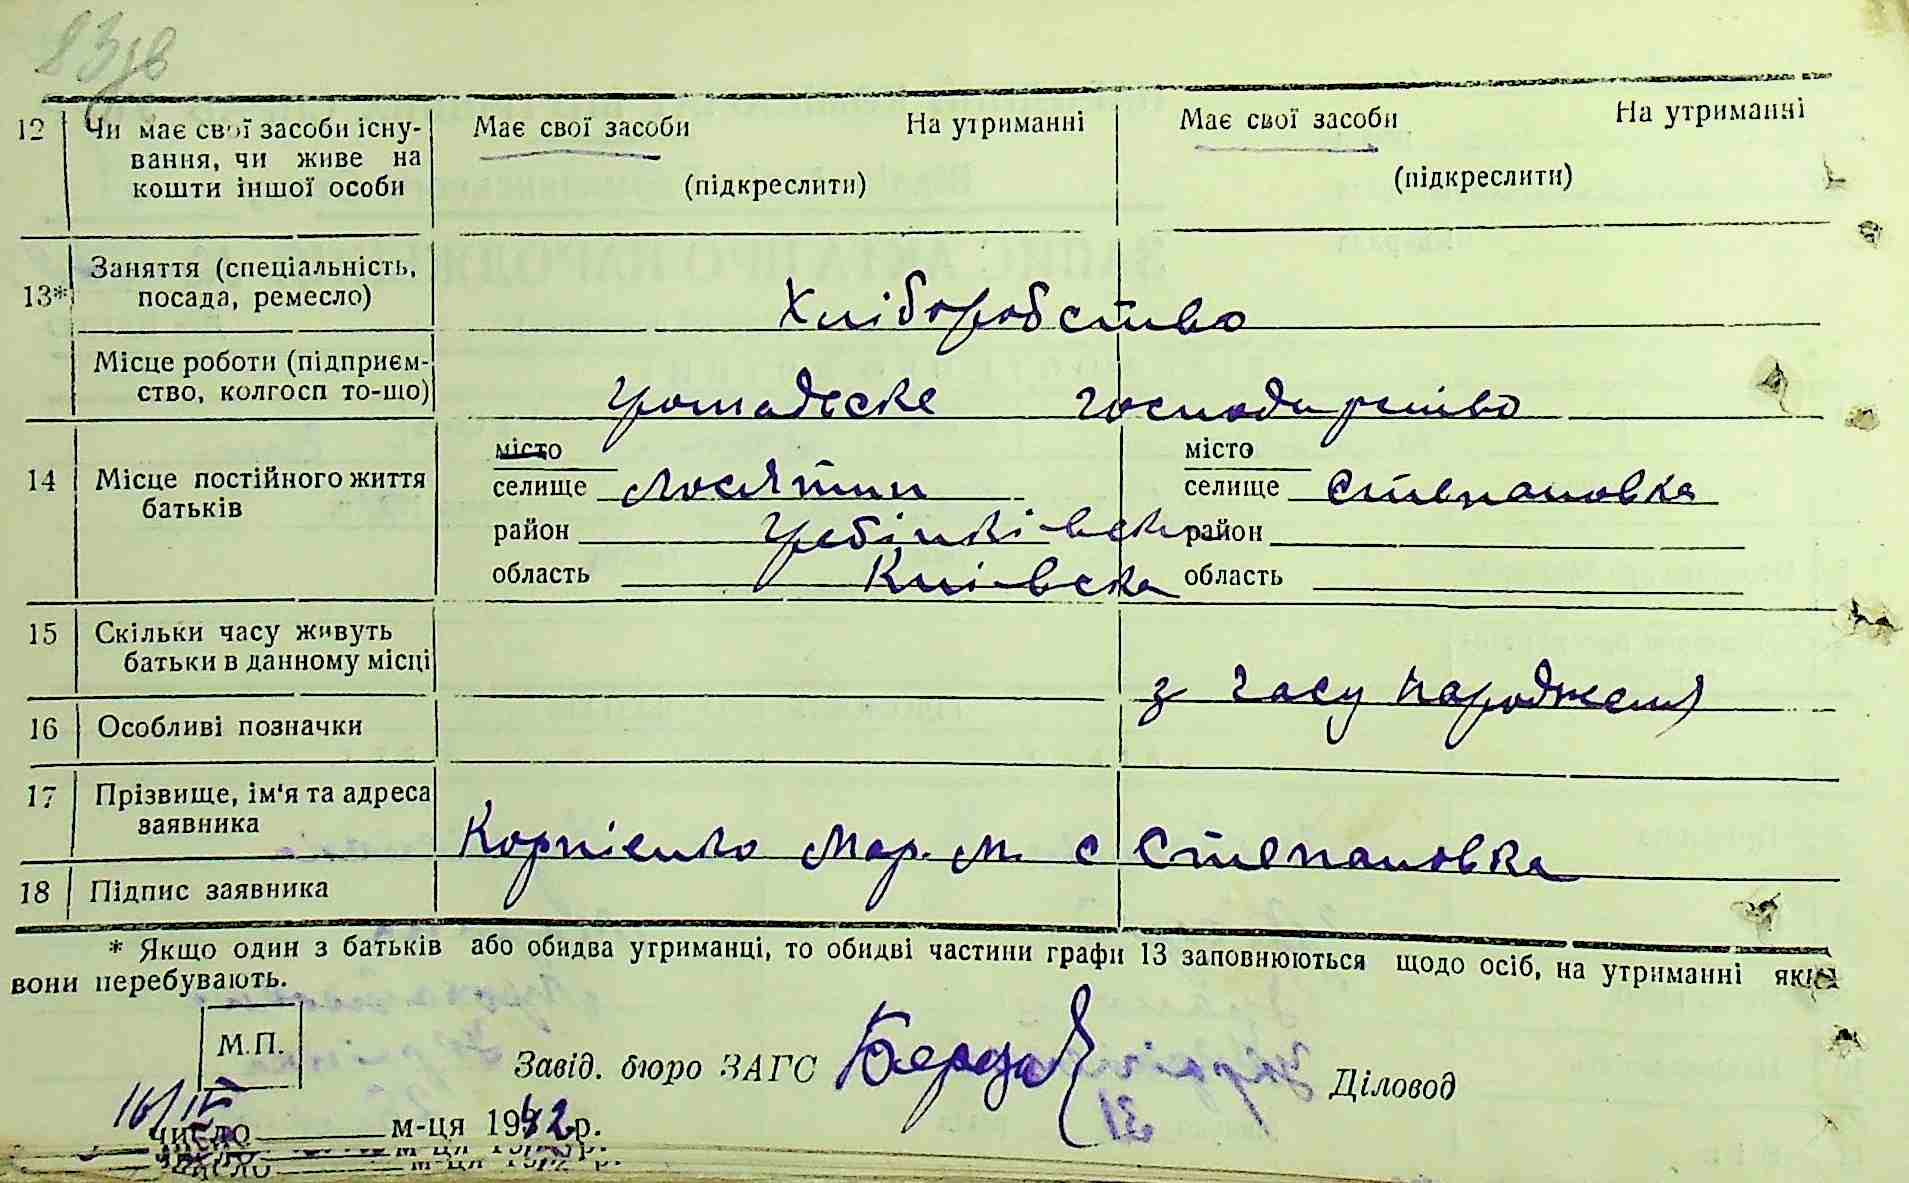 83зв
12 Чи має свої засоби існу- Має свої засоби На утриманні Має свої засоби На утриманні
вання, чи живе на
кошти іншої особи (підкреслити) (підкреслити)
13* Заняття (спеціальність,
посада, ремесло) Хліборобство
Місце роботи (підприєм-
ство, колгосп то-що) громадське господарство
місто місто
14 Місце постійного життя селище Лосятин селище Степановка
батьків район Гребінківськ район
область Київська область
15 Скільки часу живуть
батьки в данному місці з часу народження
16 Особливі позначки
17 Прізвище, ім'я та адреса
заявника Корпієнко Мар. М. с Степановка
18 Підпис заявника
* Якщо один з батьків або обидва утриманці, то обидві частини графи 13 заповнюються щодо осіб, на утриманні яких
вони перебувають.
М.П.
Завід. бюро ЗАГС Діловод
16/IV
число м-ця 1942 р.